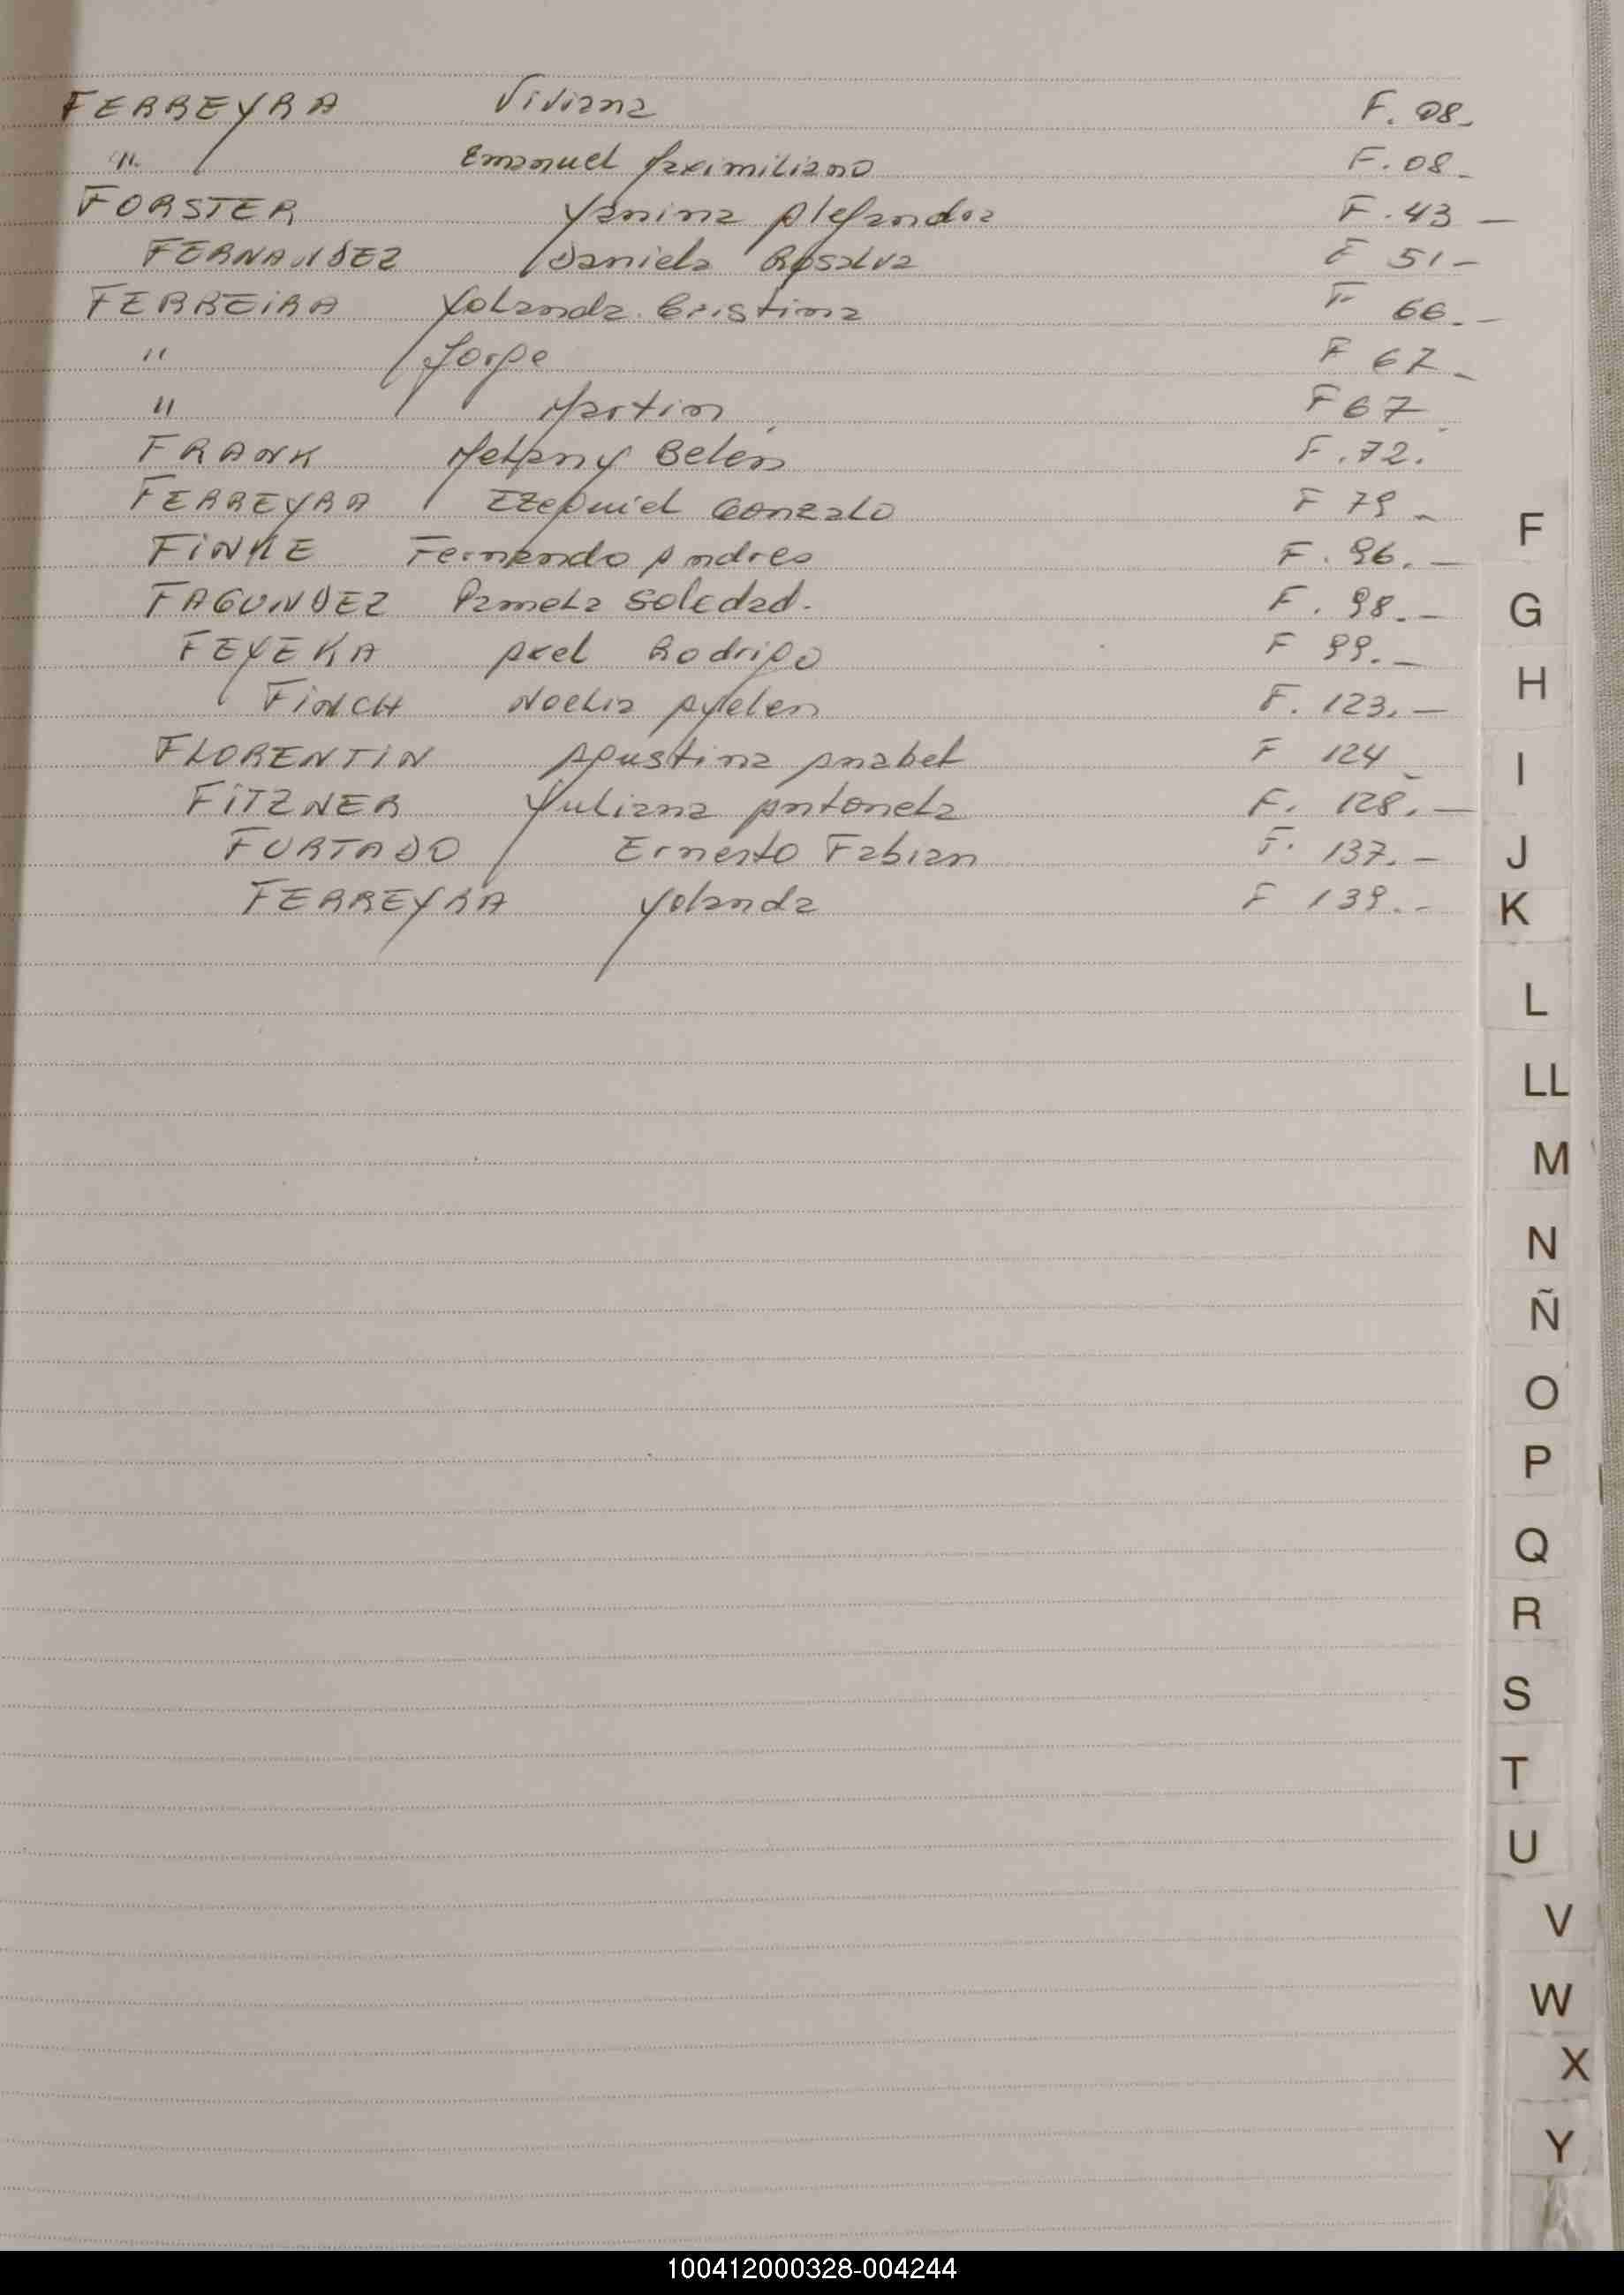 FERREYRA Viviana F. 08.
" Emanuel Maximiliano F. 08.
FORSTER Yanina Alejandra F. 43 —
FERNANDEZ Daniela Rosalva F 51 -
FERREIRA Yolanda Cristina F 66. -
" Jorge F 67 -
" Martin F 67
FRANK Melany Belén F. 72.
FERREYRA Ezequiel Gonzalo F 79 -
FINKE Fernando Andres F. 96. —
FAGUNDEZ Pamela Soledad. F. 98. -
FEYEKA Axel Rodrigo F 99. -
FINCH Noelia Ayelen F. 123. —
FLORENTIN Agustina Anabel F 124 -
FITZNER Yuliana Antonela F. 128. —
FURTADO Ernesto Fabian F. 137. -
FERREYRA Yolanda F 139. -
F
G
H
I
J
K
L
LL
M
N
Ñ
O
P
Q
R
S
T
U
V
W
X
Y
100412000328-004244